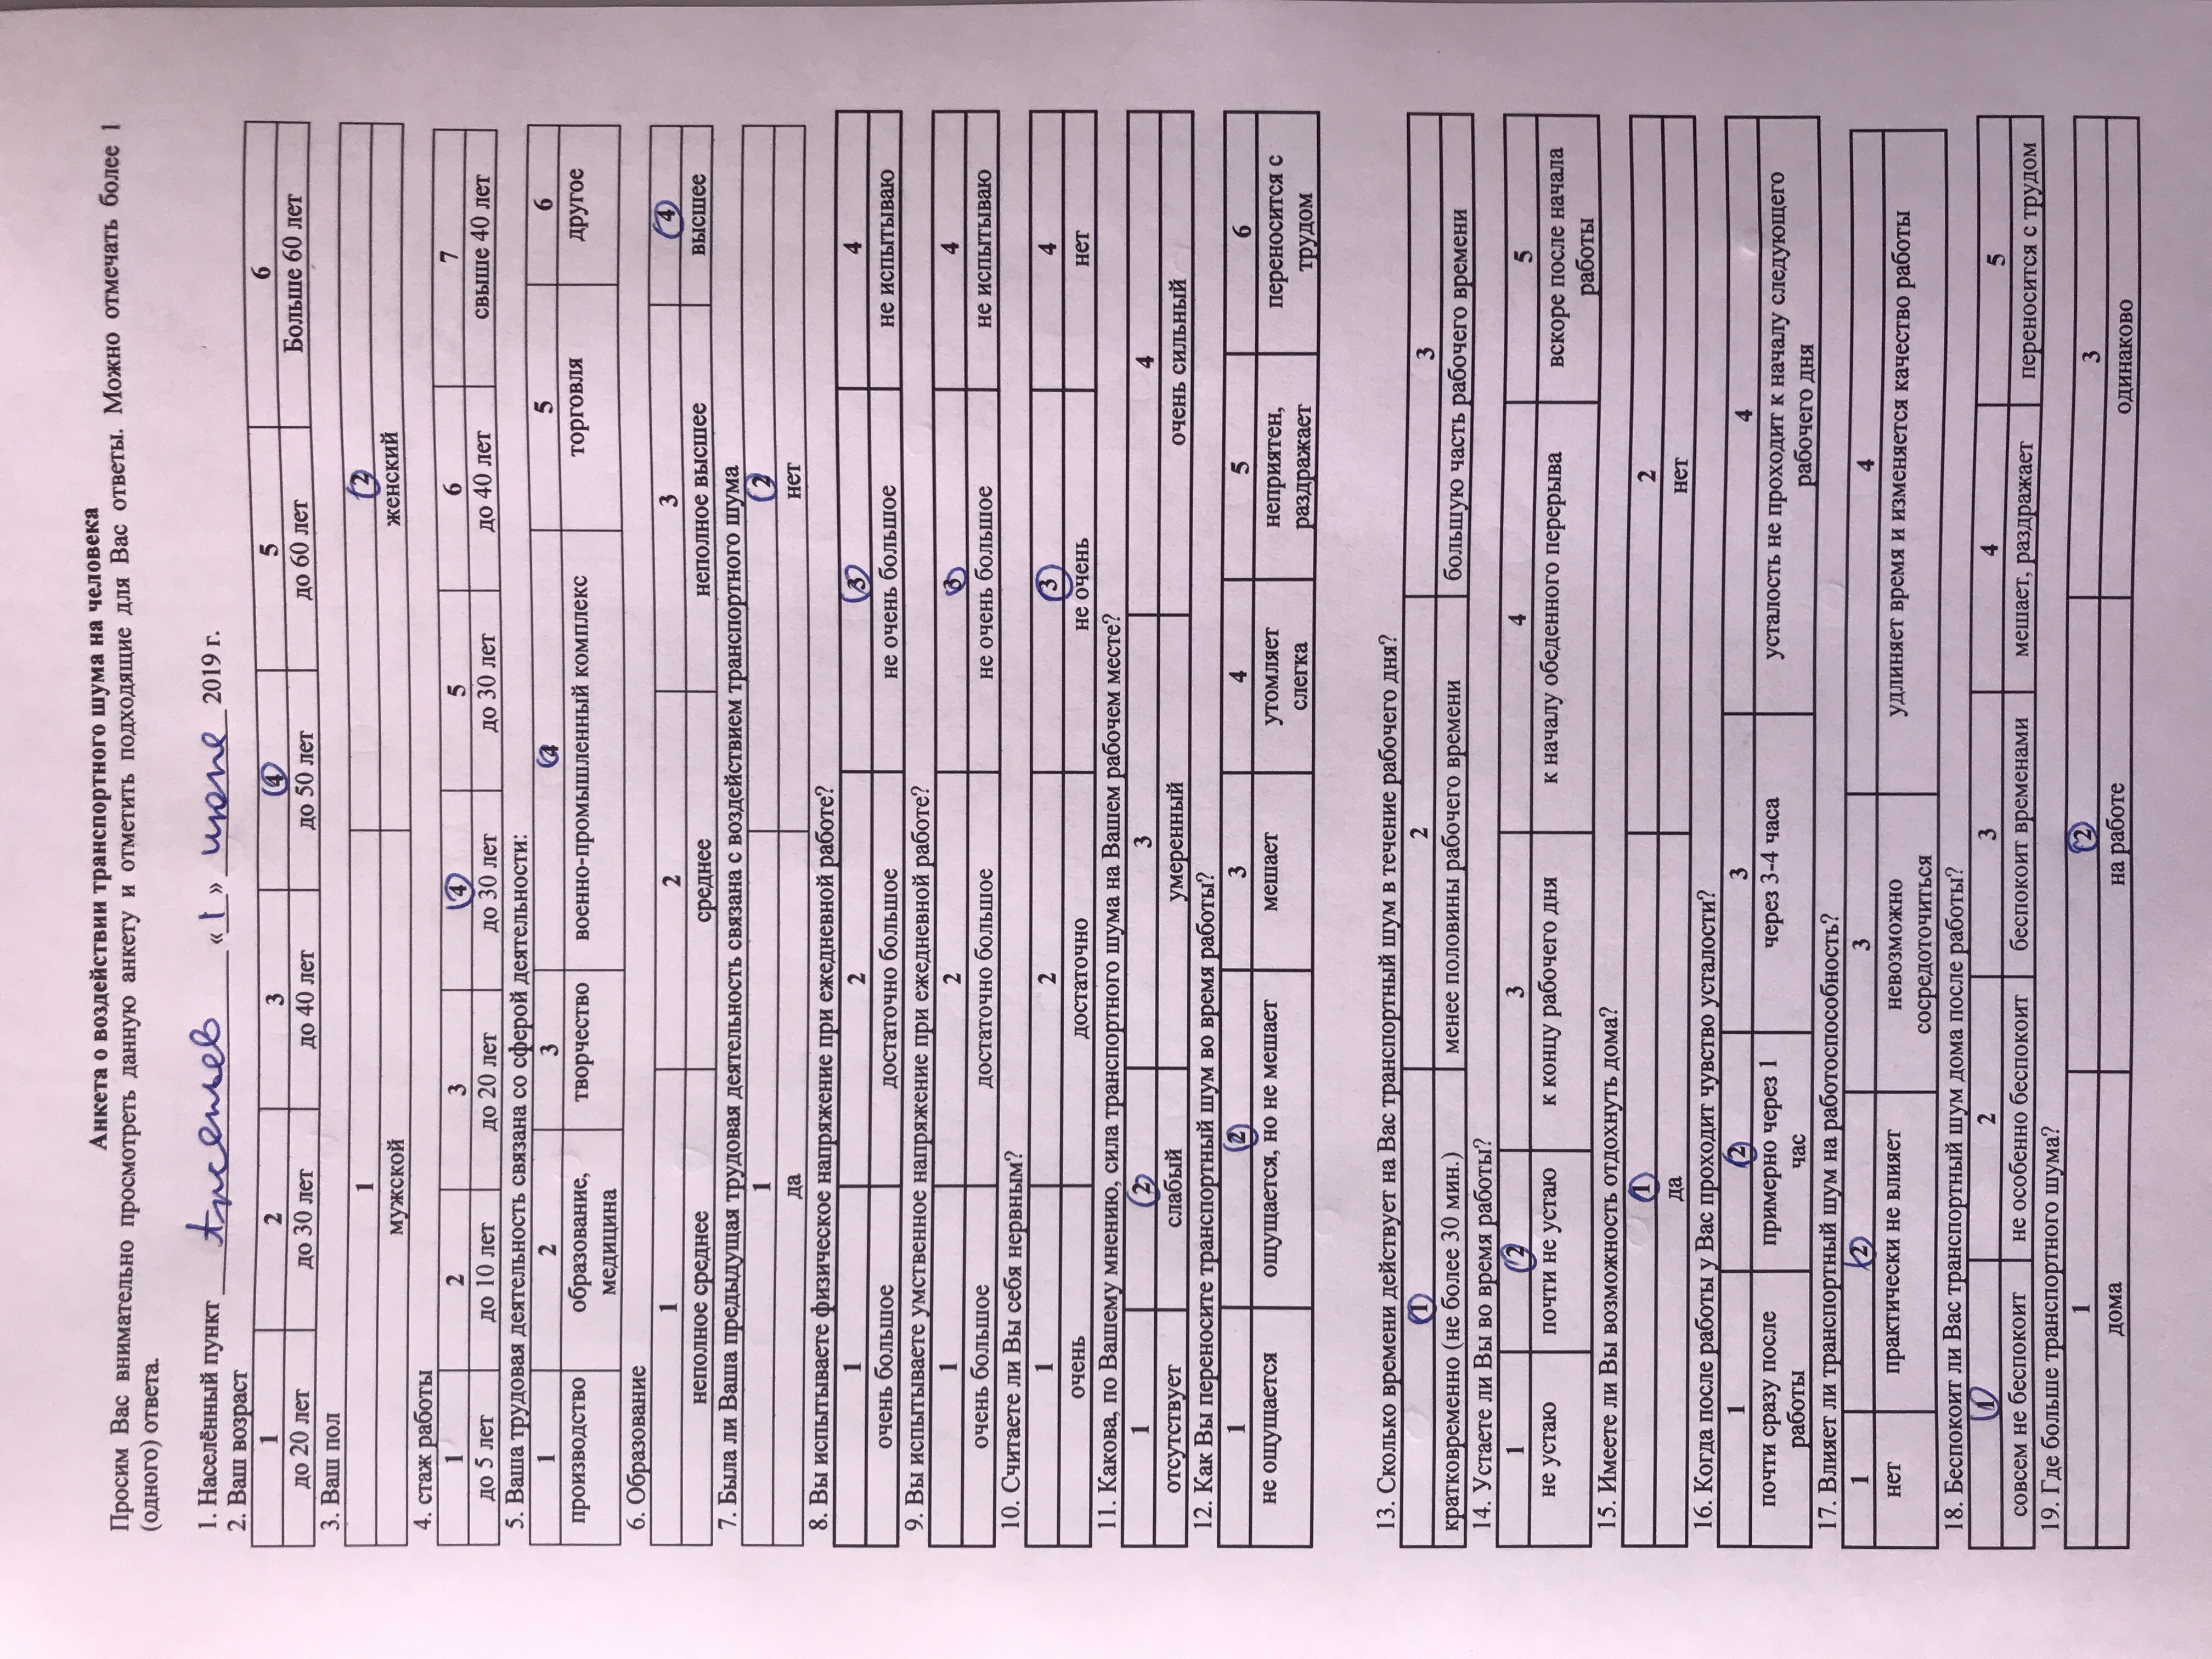 Анкета о воздействии транспортного шума на человека
Просим Вас внимательно просмотреть данную анкету и отметить подходящие для Вас ответы. Можно отмечать более 1
(одного) ответа.
1. Населённый пункт Арсеньев «1» июне 2019 г.
2. Ваш возраст
1 2 3 4 5 6
до 20 лет до 30 лет до 40 лет до 50 лет до 60 лет Больше 60 лет
3. Ваш пол
1 2
мужской женский
4. стаж работы
1 2 3 4 5 6 7
до 5 лет до 10 лет до 20 лет до 30 лет до 30 лет до 40 лет свыше 40 лет
5. Ваша трудовая деятельность связана со сферой деятельности:
1 2 3 4 5 6
производство образование, творчество военно-промышленный комплекс торговля другое
медицина
6. Образование
1 2 3 4
неполное среднее среднее неполное высшее высшее
7. Была ли Ваша предыдущая трудовая деятельность связана с воздействием транспортного шума
1 2
да нет
8. Вы испытываете физическое напряжение при ежедневной работе?
1 2 3 4
очень большое достаточно большое не очень большое не испытываю
9. Вы испытываете умственное напряжение при ежедневной работе?
1 2 3 4
очень большое достаточно большое не очень большое не испытываю
10. Считаете ли Вы себя нервным?
1 2 3 4
очень достаточно не очень нет
11. Какова, по Вашему мнению, сила транспортного шума на Вашем рабочем месте?
1 2 3 4
отсутствует слабый умеренный очень сильный
12. Как Вы переносите транспортный шум во время работы?
1 2 3 4 5 6
не ощущается ощущается, но не мешает мешает утомляет неприятен, переносится с
слегка раздражает трудом
13. Сколько времени действует на Вас транспортный шум в течение рабочего дня?
1 2 3
кратковременно (не более 30 мин.) менее половины рабочего времени большую часть рабочего времени
14. Устаете ли Вы во время работы?
1 2 3 4 5
не устаю почти не устаю к концу рабочего дня к началу обеденного перерыва вскоре после начала
работы
15. Имеете ли Вы возможность отдохнуть дома?
1 2
да нет
16. Когда после работы у Вас проходит чувство усталости?
1 2 3 4
почти сразу после примерно через 1 через 3-4 часа усталость не проходит к началу следующего
работы час рабочего дня
17. Влияет ли транспортный шум на работоспособность?
1 2 3 4
нет практически не влияет невозможно удлиняет время и изменяется качество работы
сосредоточиться
18. Беспокоит ли Вас транспортный шум дома после работы?
1 2 3 4 5
совсем не беспокоит не особенно беспокоит беспокоит временами мешает, раздражает переносится с трудом
19. Где больше транспортного шума?
1 2 3
дома на работе одинаково